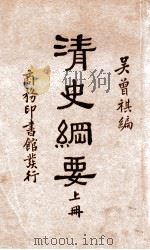 吳曾祺編
清史綱要
上冊
商務印書館發行